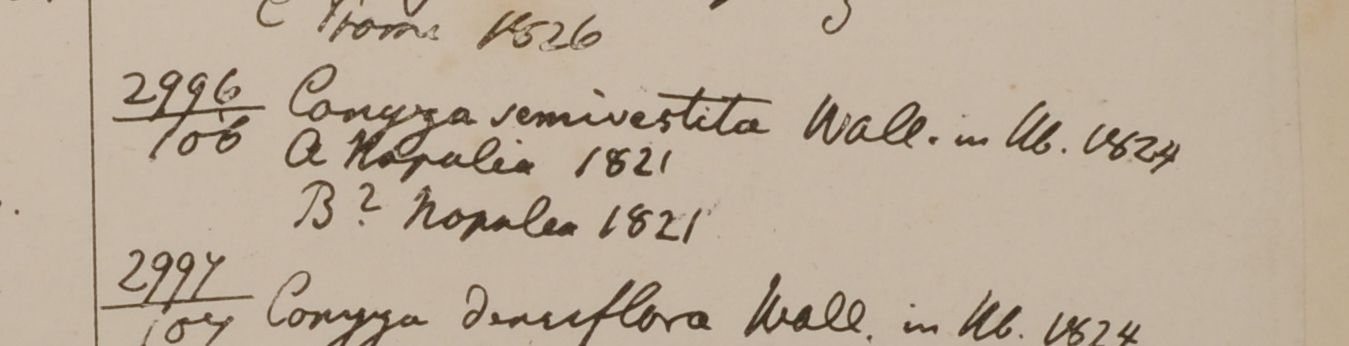 C Prome 1826
2996 Conyza semivestita Wall. in Hb. 1824
106
A Napalia 1821
B? Napalea 1821
2997 Conyza densiflora Wall. in Hb. 1824
107